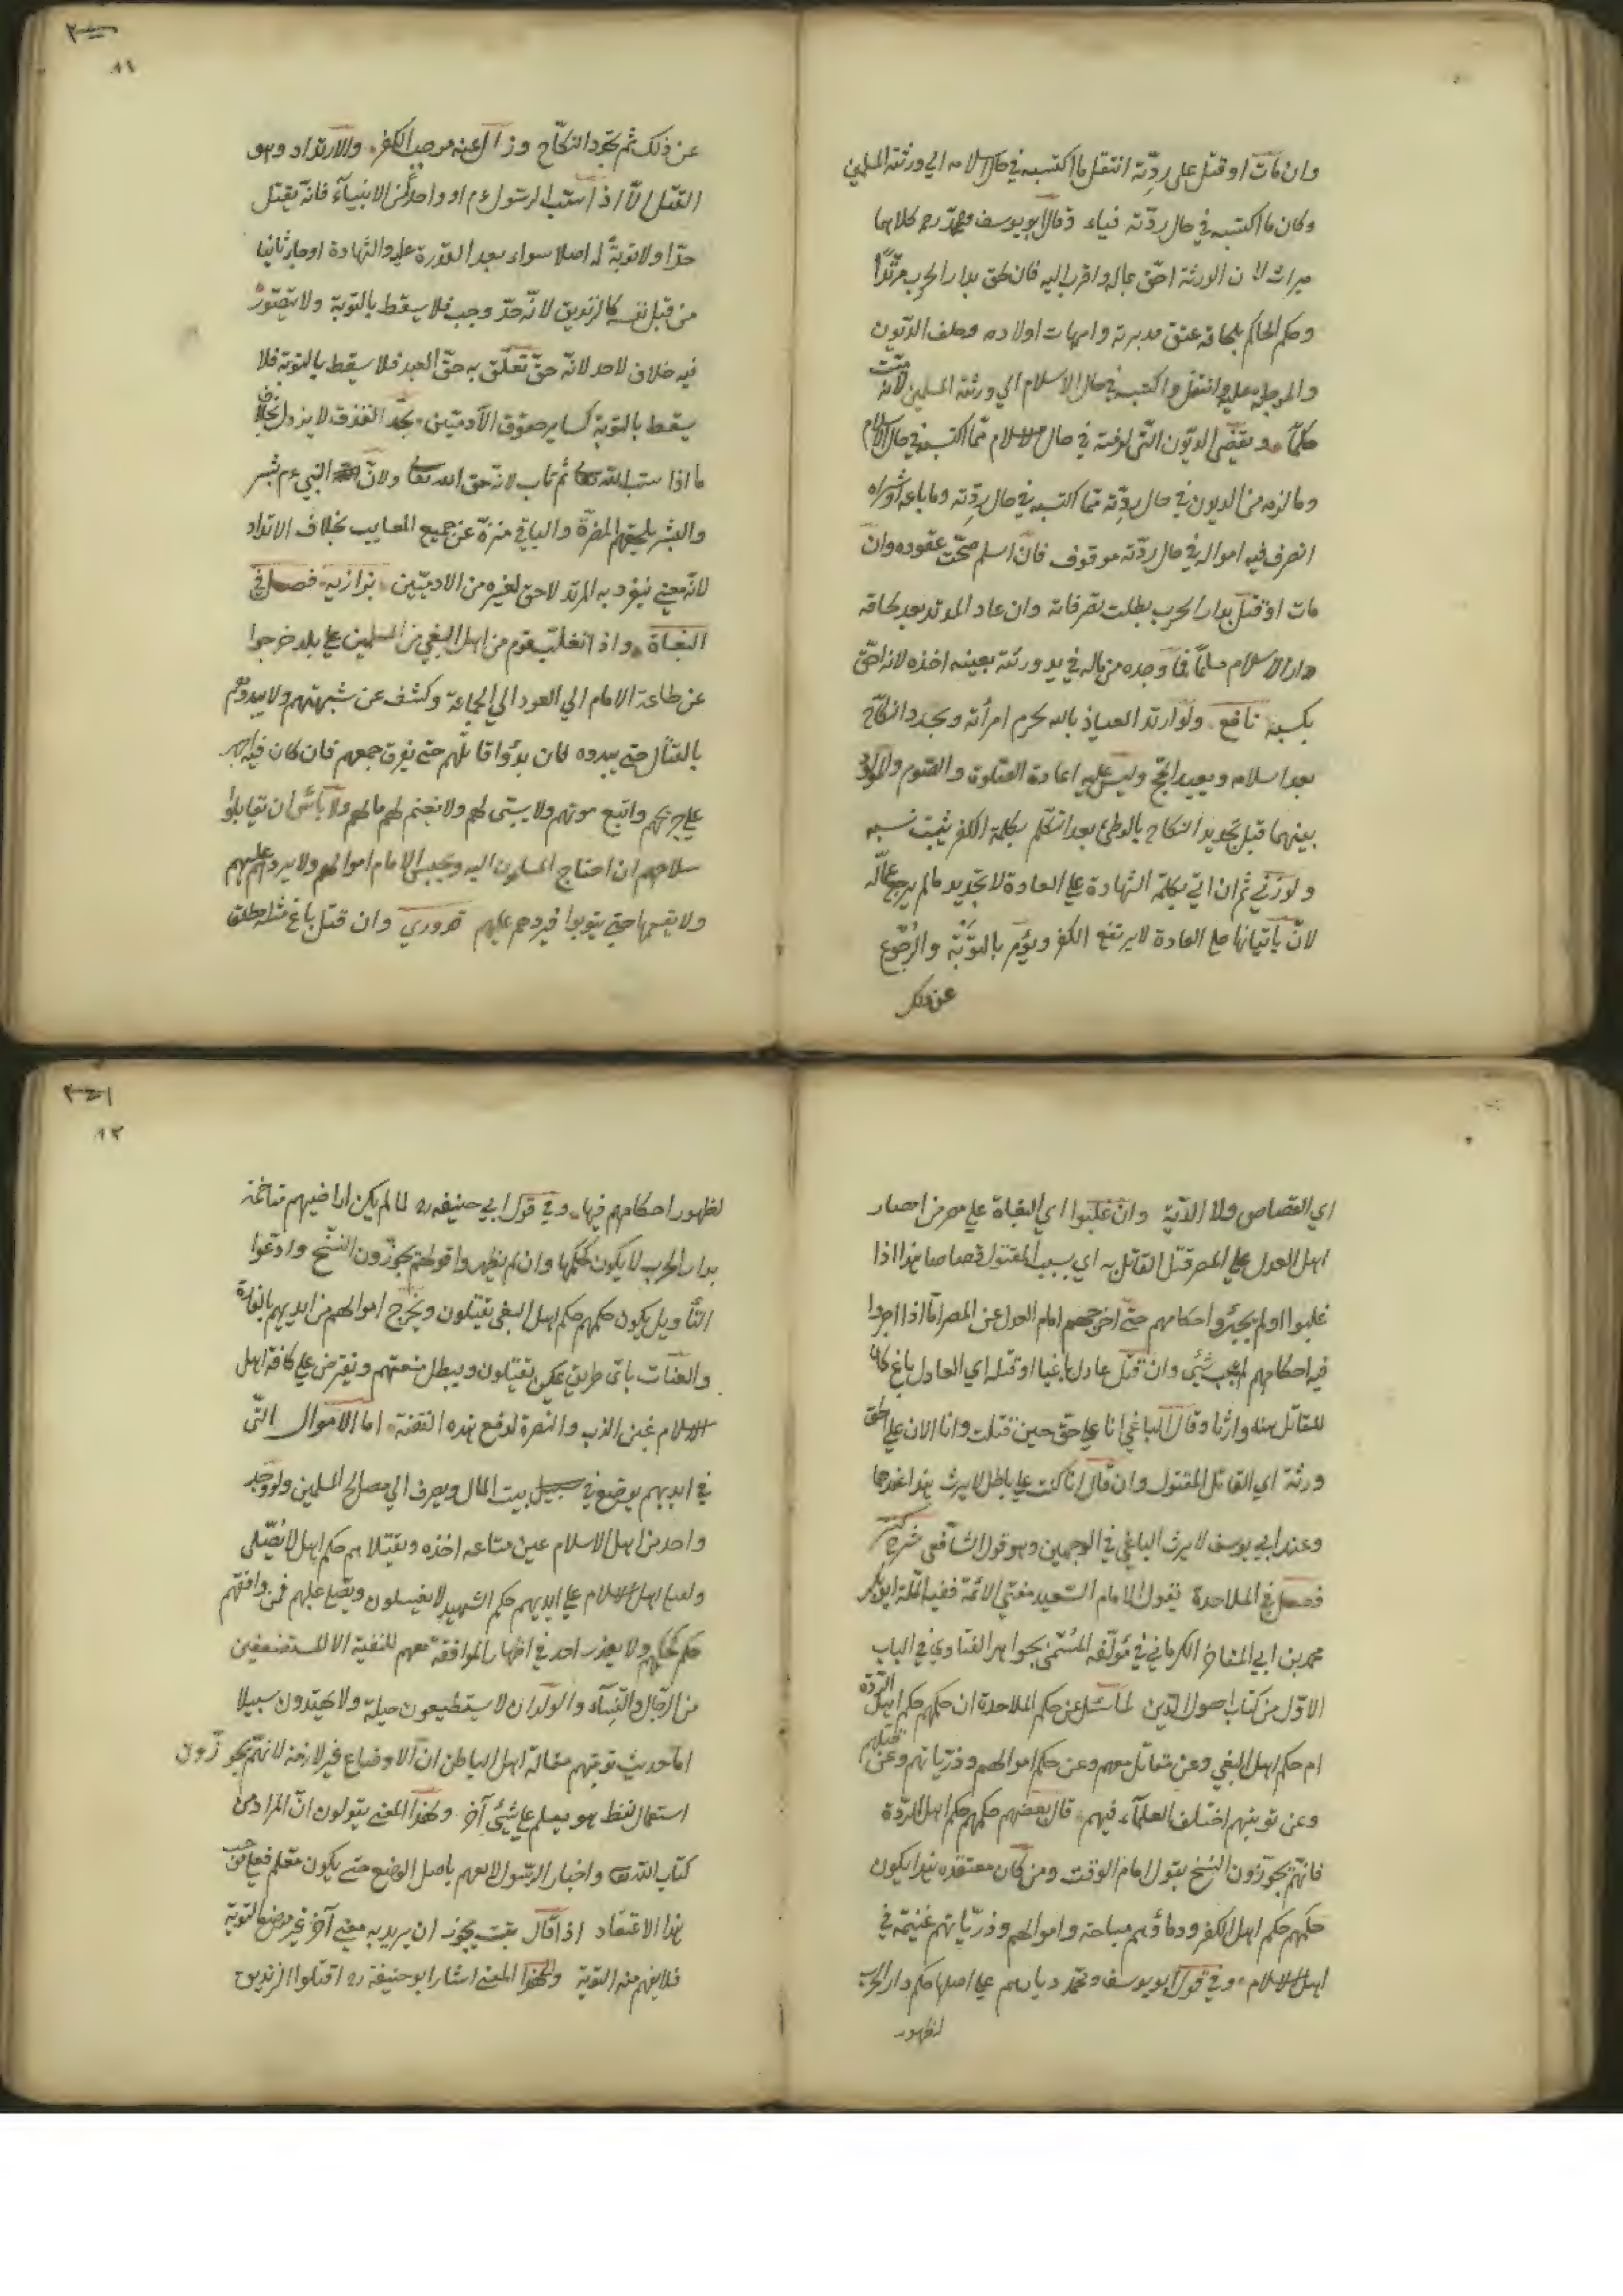 وان مات او قتل على ردّته انتقل ما اكتسبه في حال اسلامه الي ورثته المسلمين
وكان ما اكتسبه في حال ردّته فياء وقال ابو يوسف ومحمد رح كلاهما
ميراث لان الورثة احقّ بماله واقرب اليه فان لحق بدار الحرب مرتدّا
وحكم الحاكم بلحاقه عتق مدبرته وامهات اولاده وحلت الديون
والموجلة عليه وانتقل ما اكتسبه في حال الاسلام الي ورثته المسلمين لانه ميّت
حكماً ويقضي الديون التي لزمته في حال الاسلام ممّا اكتسبه في حال الاسلام
وما لزمه من الديون في حال ردّته ممّا اكتسبه في حال ردّته وما باعه او شراه
انصرف فيه امواله في حال ردّته موقوف فان اسلم صحّت عقوده وان
مات او قتل بدار الحرب بطلت تصرفاته وان عاد المرتد بعد لحاقه
دار الاسلام مسلماً فما وجده من ماله في يد ورثته بعينه اخذه لانه احقّ
بكسبه نافع ولو ارتد العياذ بالله يحرم امرأته ويجدد النكاح
بعد اسلامه ويعيد الحج وليس عليه اعادة الصلوة والصوم والمولود
بينهما قبل تجديد النكاح بالوطئ بعد التكلم بكلمة الكفر يثبت نسبه
ولو زني ثم ان اتي بكلمة الشهادة علي العادة لا يجديه ما لم يرجع عمّا قاله
لانّ باتيانها علي العادة لا يرتفع الكفر ويؤمر بالتوبة والرجوع
عن ذلك
٨١
عن ذلك ثم تجدد النكاح وزال عنه موجب الكفر والارتداد وهو
القتل الاّ اذا سبّ الرسول ءم او واحداً من الانبياء فانه يقتل
حدّا ولا توبة له اصلا سواء بعد القدرة عليه والشهادة او جاء تائبا
من قبل نفسه كالزنديق لانّه حدّ وجب فلا يسقط بالتوبة ولا يتصوّر
فيه خلاف لاحد لانّه حقّ تعلّق به حقّ العبد فلا يسقط بالتوبة فلا
يسقط بالتوبة كسائر حقوق الآدميّين وكحدّ القذف لا يزول بخلاف
ما اذا سبّ الله تعالى ثم تاب لانه حق الله تعالى ولانّ النبي ءم بشر
والبشر يلحقهم المعرّة والباقي منزّه عن جميع المعايب بخلاف الارتداد
لانه معني ينفرد به المرتد لا حق لغيره من الادميّين بزازيه فصل في
البغاة واذا تغلب قوم من اهل البغي من المسلمين علي بلد خرجوا
عن طاعة الامام الي العود الي الجماعة وكشف عن شبهتهم ولا يبدؤهم
بالقتال حتي يبدوه فان بدؤا قاتلهم حتي يفرق جمعهم فان كان فيه اجهز
علي جريحهم واتبع موتهم ولا يسبي لهم ولا يغنم لهم مالهم ولا بأس ان يقاتلوا
سلاحهم ان احتاج المسلمون اليه ويحبس الامام اموالهم ولا يردها عليهم
ولا يقسمها حتي يتوبوا فيردهم عليهم قدوري وان قتل باغ مثله مطلق
٨٢
اي القصاص ولا الديّة وان غلبوا اي البغاة علي مصر من امصار
اهل العدل علي المصر قتل القاتل به اي بسبب المقتول قصاصا هذا اذا
غلبوا او لم يجروا احكامهم حتي اخرجهم امام العدل عن المصر امّا اذا اجروا
فيه احكامهم لم يجب شئ وان قتل عادل باغيا او قتله اي العادل باغ كان
للقاتل منه وارثا وقال الباغي انا علي حق حين قتلت وانا الان علي الحق
ورثه اي القاتل المقتول وان قال انا كنت علي باطل لا يرث هذا عندهما
وعند ابي يوسف لا يرث الباغي في الوجهين وهو قول الشافعي شرح كنز
فصل في الملاحدة يقول الامام السعيد مفتي الائمة فقيه الملّة ابو بكر
محمد بن ابي المفاخر الكرماني في مؤلّفه المسمّى بجواهر الفتاوي في الباب
الاوّل من كتاب اصول الدين لما سئل عن حكم الملاحدة ان حكمهم حكم اهل الردّة
ام حكم اهل البغي وعن مقاتل معهم وعن حكم اموالهم وذرّياتهم وعن قتلهم
وعن توبتهم اختلف العلماء فيهم قال بعضهم حكمهم حكم اهل الردّة
فانهم يجوّزون النسخ بقول امام الوقت ومن كان معتقده هذا يكون
حكمهم حكم اهل الكفر ودماؤهم مباحة واموالهم وذرّياتهم غنيمة في
اهل الاسلام وفي قول ابو يوسف ومحمد ديارهم علي اصلها حكم دار الحرب
لظهور
لظهور احكامهم فيها وفي قول ابي حنيفه رح لما لم يكن اراضيهم متاخمة
بدار الحرب لا يكون كحكمها وان لم يظهروا قولهم بجوّزون النسخ وادّعوا
التأويل يكون حكمهم حكم اهل البغي يقتلون ويخرج اموالهم من ايديهم بالغارة
والعنات بايّ طريق يمكن يقتلون ويبطل منعتهم ويفترض علي كافة اهل
الاسلام عين الذب والنصرة لدفع هذه الفتنة اما الاموال التّي
في ايديهم يوضع في سبيل بيت المال ويصرف الي مصالح المسلمين ولو وجد
واحد من اهل الاسلام عين متاعه اخذه وبقتلاهم حكم اهل لا يُصلّى
ولقتلي اهل الاسلام علي ايديهم حكم الشهيد لا يغسلون ويصلي عليهم فمن وافقهم
حكم كحكمهم ولا يعذر احد في اظهار الموافقة معهم للتقية الا للمستضعفين
من الرجال والنساء والولدان لا يستطيعون حيلة ولا يهتدون سبيلا
اما حديث توبتهم مقالة اهل الباطن ان الاوضاع غير لازمة لانهم يجوزون
استعمال لفظ هو يعلم علي شئ آخر ولهذا المعني يقولون انّ المراد من
كتاب الله تعالى واخبار الرسول لا يفهم باصل الوضع حتي يكون معلم فعلي
هذا الاعتقاد اذا قال تبت يجوز ان يريد به معني آخر غير موضع التوبة
فلا يفهم منه التوبة ولهذا المعني اشار ابو حنيفة رح اقتلوا الزنديق